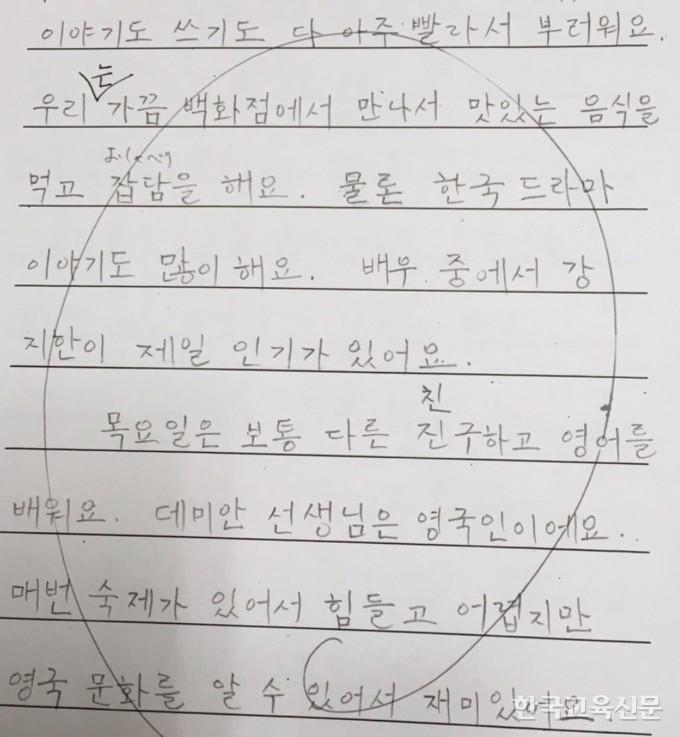 이야기도 쓰기도 다 아주 빨라서 부러워요.
는
우리 가끔 백화점에서 만나서 맛있는 음식을
おしゃべり
먹고 잡담을 해요. 물론 한국 드라마
이야기도 많이 해요. 배우 중에서 강
지환이 제일 인기가 있어요.
친
목요일은 보통 다른 진구하고 영어를
배워요. 데미안 선생님은 영국인이에요.
매번 숙제가 있어서 힘들고 어렵지만
영국 문화를 알 수 있어서 재미있어요
한국교육신문